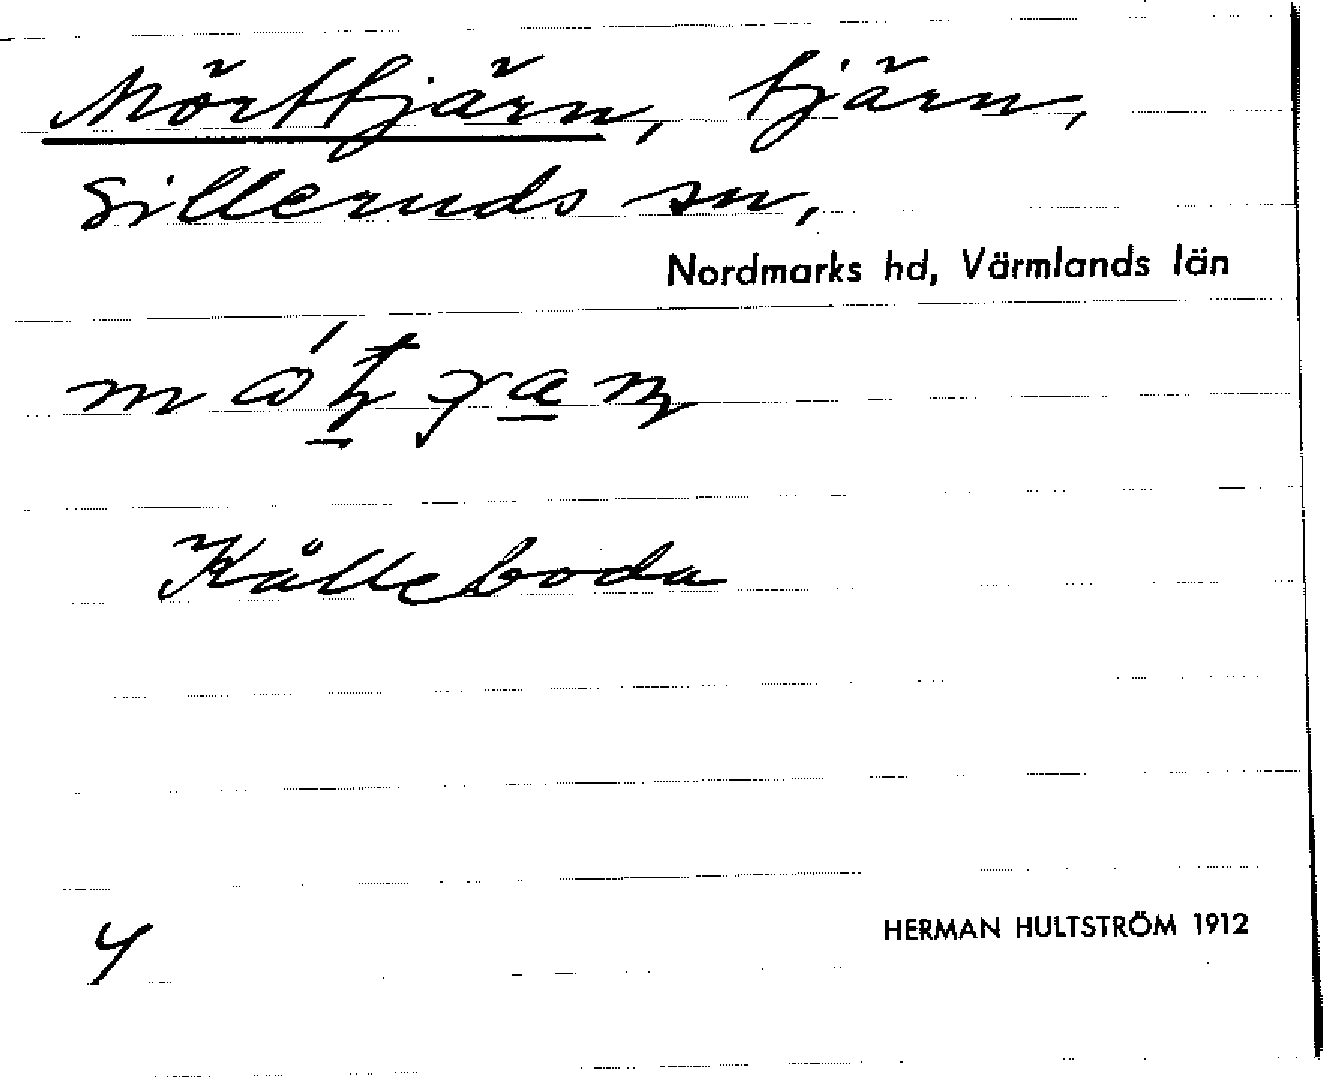 Mörttjärn, tjärn,
Silleruds sn,
Nordmarks hd, Värmlands län
Kålleboda
4
HERMAN HULTSTRÖM 1912